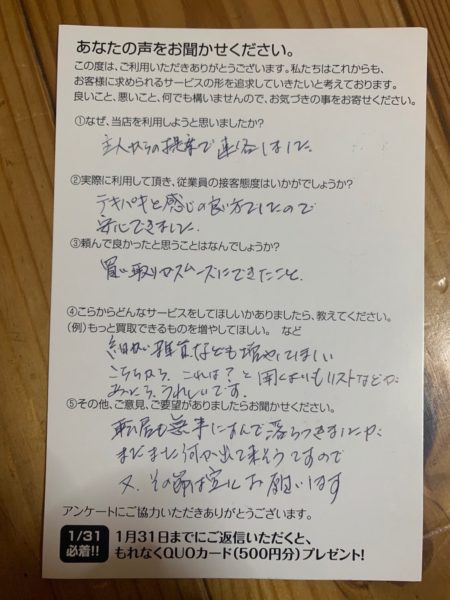 あなたの声をお聞かせください。
この度は、ご利用いただきありがとうございます。私たちはこれからも、
お客様に求められるサービスの形を追求していきたいと考えております。
良いこと、悪いこと、何でも構いませんので、お気づきの事をお寄せください。
①なぜ、当店を利用しようと思いましたか?
主人からの提案で連絡しました。
②実際に利用して頂き、従業員の接客態度はいかがでしょうか?
テキパキと感じの良い方でしたので
安心できました。
③頼んで良かったと思うことはなんでしょうか?
買い取りがスムーズにできたこと。
④こらからどんなサービスをしてほしいかありましたら、教えてください。
(例)もっと買取できるものを増やしてほしい。 など
細かい雑貨なども増やしてほしい
こちらから、これは?と聞くよりもリストなどが
あったら、うれしいです。
⑤その他、ご意見、ご要望がありましたらお聞かせください。
転居も無事にすんで落ちつきましたが、
まだまだ何か出て来そうですので
又、その節は宜しくお願いします
アンケートにご協力いただきありがとうございます。
1/31
必着!!
1月31日までにご返信いただくと、
もれなくQUOカード(500円分)プレゼント!